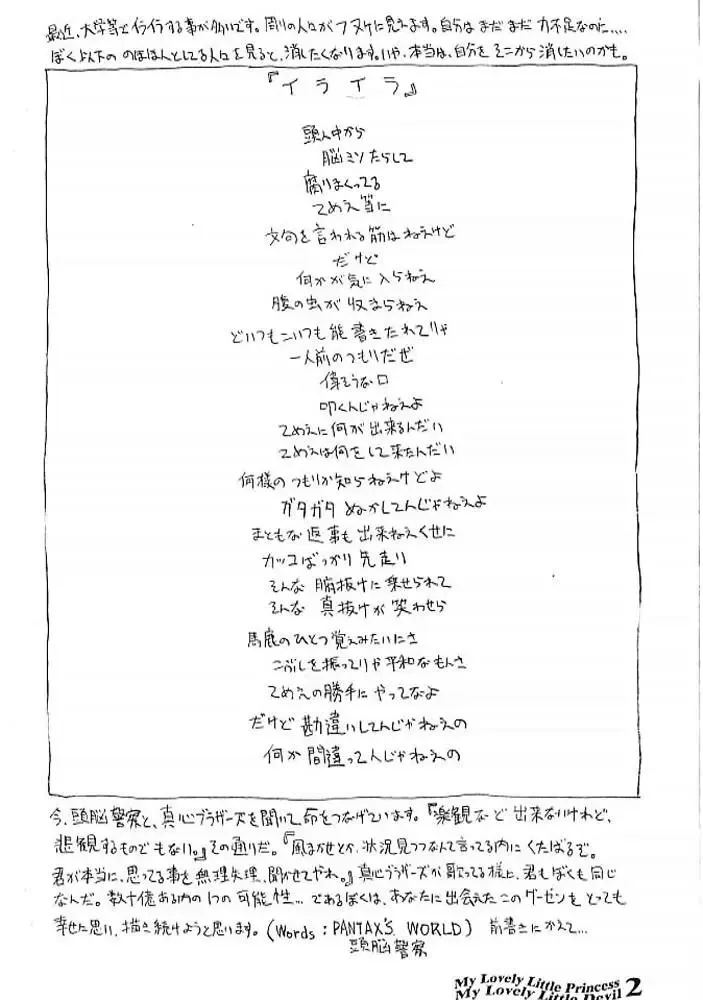 最近、大学等でイライラする事が多いです。周りの人がフヌケに見えます。自分はまだまだ力不足なのに....
ぼく以下の のほほんとしてる人を見ると、消したくなります。いや、本当は、自分をそこから消したいのかも。
『イライラ』
頭ん中から
脳ミソたらして
腐りまくってる
てめえ等に
文句を言われる筋はねえけど
だけど
何かが気に入らねえ
腹の虫が収まらねえ
どいつもこいつも能書きたれてりゃ
一人前のつもりだぜ
偉そうな口
叩くんじゃねえよ
てめえに何が出来るんだい
てめえは何をして来たんだい
何様のつもりか知らねえけどよ
ガタガタぬかしてんじゃねえよ
まともな返事も出来ねえくせに
カッコばっかり先走り
そんな腑抜けに乗せられて
そんな真抜けが笑わせら
馬鹿のひとつ覚えみたいにさ
こぶしを振ってりゃ平和なもんさ
てめえの勝手にやってなよ
だけど勘違いしてんじゃねえの
何か間違ってんじゃねえの
今、頭脳警察と、真心ブラザーズを聞いて命をつなげています。『楽観など出来ないけれど、
悲観するものでもない。』その通りだ。『風まかせとか、状況見つつなんて言ってる内にくたばるぞ。
君が本当に、思ってる事を無理矢理、聞かせてやれ。』真心ブラザーズが歌ってる様に、君もぼくも同じ
なんだ。数十億ある内の1つの可能性... であるぼくは、あなたに出会えたこのゲーセンをとっても
幸せに思い、描き続けようと思います。(Words : PANTAX'S WORLD) 前書きにかえて...
頭脳警察
My Lovely Little Princess
My Lovely Little Devil 2